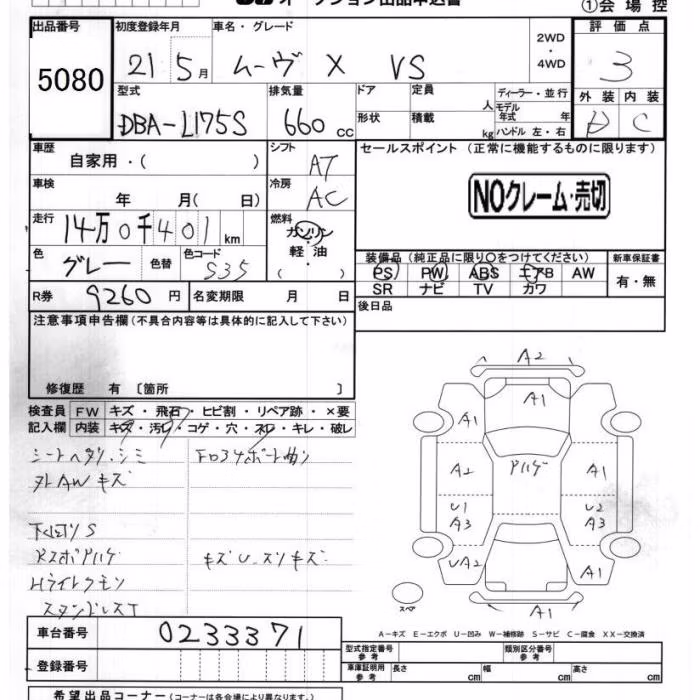 オークション出品申込書
①会場控
出品番号 初度登録年月 車名・グレード 2WD・4WD 評価点
5080 21 5月 ムーヴ X VS 3
型式 排気量 ドア 定員 人 ディーラー・並行 外装 内装
DBA-L175S 660 cc 形状 積載 kg モデル年式 年 ハンドル 左・右 D C
車歴 シフト セールスポイント (正常に機能するものに限ります)
自家用・( ) AT
車検 冷房 NOクレーム・売切
年 月( 日) AC
走行 14万0千401km 燃料
ガソリン
軽油
( )
色 グレー 色替 色コード S35
装備品 (純正品に限り○をつけてください) 新車保証書
PS PW ABS エアB AW 有・無
SR ナビ TV カワ
R券 9260円 名変期限 月 日 後日品
注意事項申告欄 (不具合内容等は具体的に記入して下さい)
修復歴 有 [箇所 ]
検査員 FW キズ・飛石・ヒビ割・リペア跡・×要
記入欄 内装 キズ・汚レ・コゲ・穴・ネジ・キレ・破レ
シートヘタリ、シミ
外AWキズ
下回りS
Hライトクモリ
キズU、スリキズ
A2
A1
A1 A1
A2 アハゲ A1
U1 U2
A3 A3
UA2 A1
A1
スペア
A-キズ E-エクボ U-凹み W-補修跡 S-サビ C-腐食 XX-交換済
車台番号 0233371
型式指定番号 参考 類別区分番号 参考
登録番号 車庫証明用 参考 長さ cm 幅 cm 高さ cm
希望出品コーナー (コーナーは各会場により異なります。)